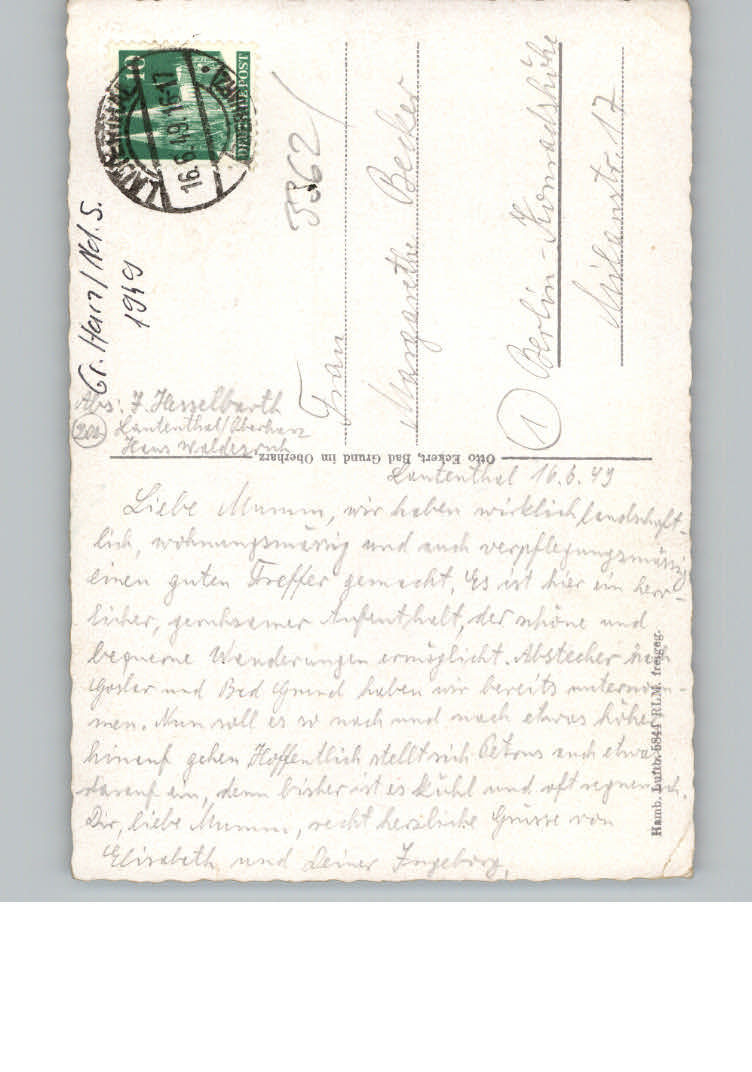 10
DEUTSCHE POST
LAUTENTHAL
16.6.49.16-17
5362/
Gr. Harz/Nd. S.
1949
Frau
Margarethe Becker
1 Berlin-Konradshöhe
Milanstr. 17
Abs: I. Hesselbarth
20b Lautenthal/Oberharz
Haus Waldesruh
Otto Eckert, Bad Grund im Oberharz
Lautenthal 16.6.49
Liebe Mumm, wir haben wirklich landschaft-
lich, wohnungsmässig und auch verpflegungsmässig
einen guten Treffer gemacht. Es ist hier ein herr-
licher, geruhsamer Aufenthalt, der schöne und
bequeme Wanderungen ermöglicht. Abstecher nach
Goslar und Bad Grund haben wir bereits unternom-
men. Nun soll es so nach und nach etwas höher
hinauf gehen Hoffentlich stellt sich Petrus auch etwas
darauf ein, denn bisher ist es kühl und oft regnerisch.
Dir, liebe Mumm, recht herzliche Grüsse von
Elisabeth und Deiner Ingeborg.
Hamb. Luftb. 5844 RLM. freigeg.